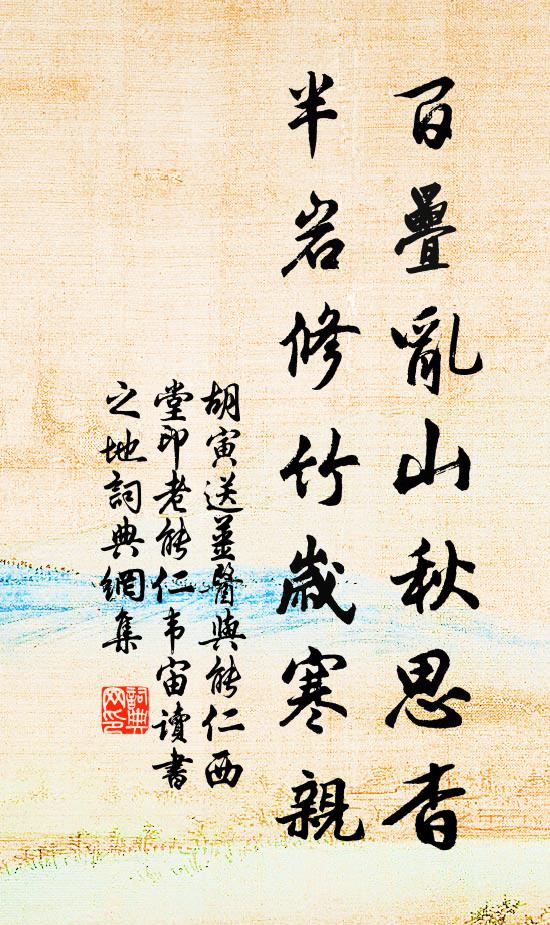 百疊亂山秋思杳
半岩修竹歲寒親
胡寅送薑醫與能仁西
堂印老能仁韦宙讀書
之地詞典網集
詞典
网印